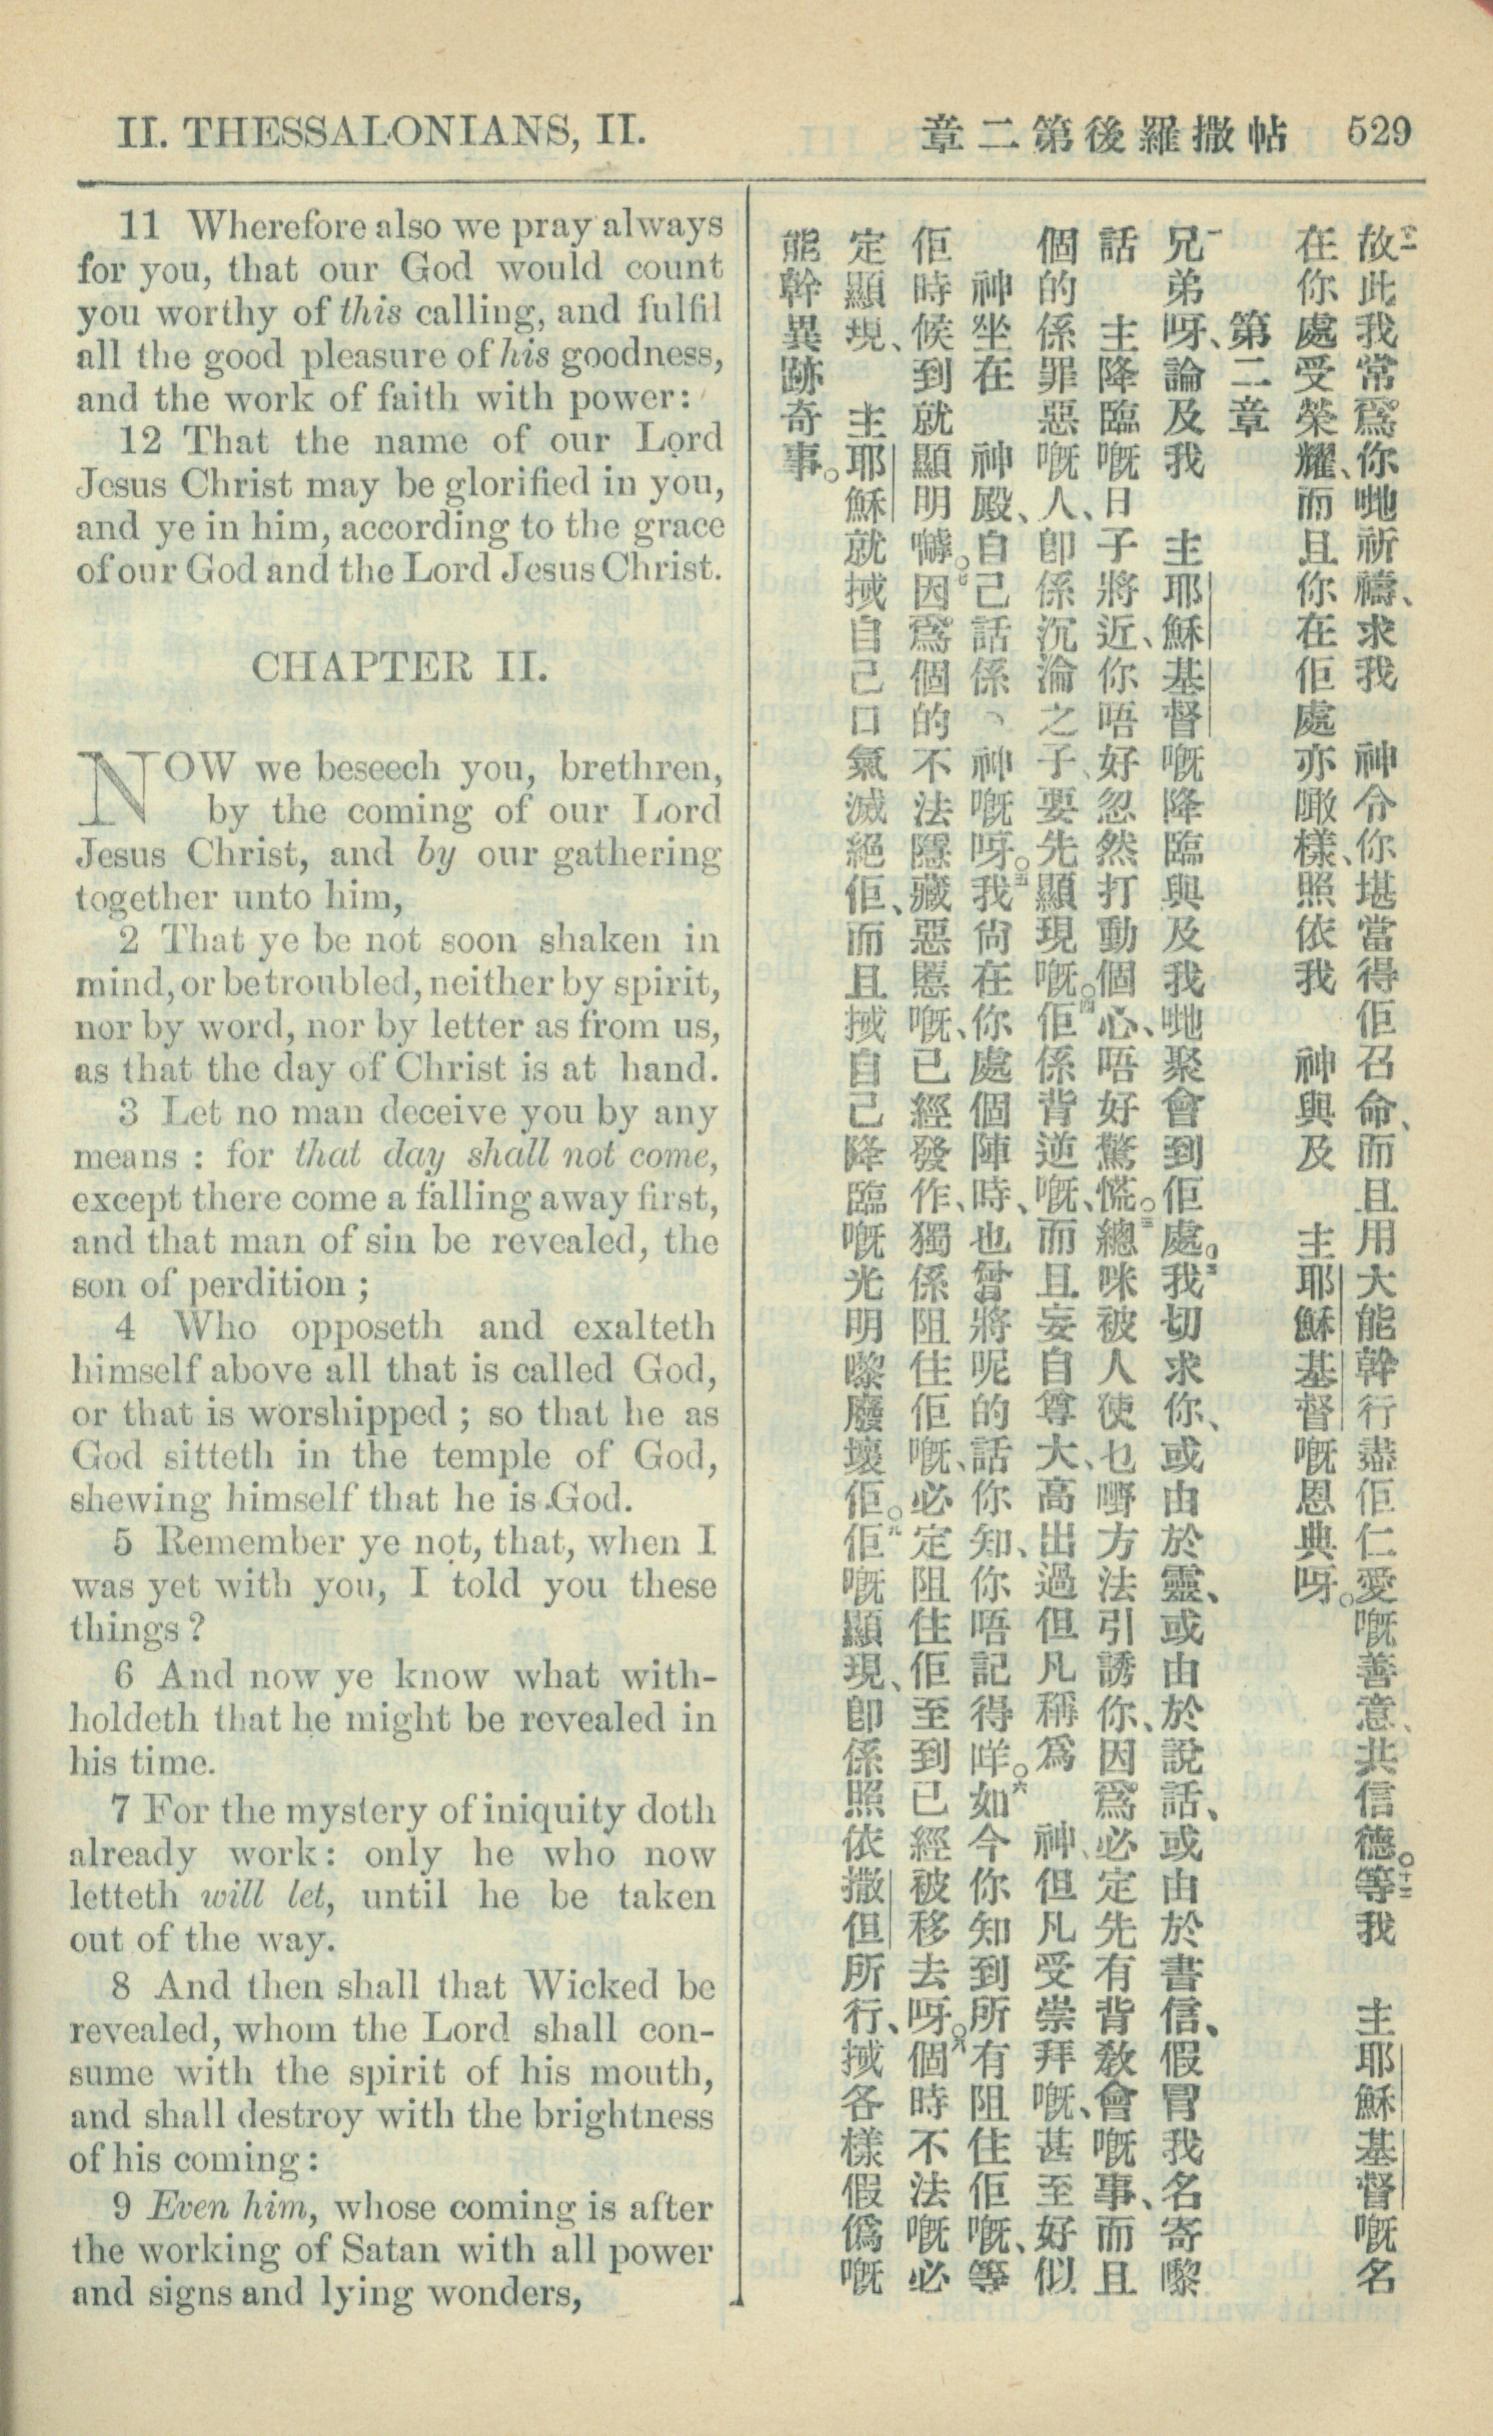 II. THESSALONIANS, II.
章二第後羅撒帖 529
11 Wherefore also we pray always
for you, that our God would count
you worthy of this calling, and fulfil
all the good pleasure of his goodness,
and the work of faith with power:
12 That the name of our Lord
Jesus Christ may be glorified in you,
and ye in him, according to the grace
of our God and the Lord Jesus Christ.
CHAPTER II.
NOW we beseech you, brethren,
by the coming of our Lord
Jesus Christ, and by our gathering
together unto him,
2 That ye be not soon shaken in
mind, or be troubled, neither by spirit,
nor by word, nor by letter as from us,
as that the day of Christ is at hand.
3 Let no man deceive you by any
means : for that day shall not come,
except there come a falling away first,
and that man of sin be revealed, the
son of perdition ;
4 Who opposeth and exalteth
himself above all that is called God,
or that is worshipped ; so that he as
God sitteth in the temple of God,
shewing himself that he is God.
5 Remember ye not, that, when I
was yet with you, I told you these
things ?
6 And now ye know what with-
holdeth that he might be revealed in
his time.
7 For the mystery of iniquity doth
already work: only he who now
letteth will let, until he be taken
out of the way.
8 And then shall that Wicked be
revealed, whom the Lord shall con-
sume with the spirit of his mouth,
and shall destroy with the brightness
of his coming :
9 Even him, whose coming is after
the working of Satan with all power
and signs and lying wonders,
十一故此我常爲你哋祈禱、求我 神令你堪當得佢召命、而且用大能幹行盡佢仁愛嘅善意、共信德。十二等我 主耶穌基督嘅名
在你處受榮耀、而且你在佢處亦噉樣、照依我 神與及 主耶穌基督嘅恩典呀。
第二章
一兄弟呀、論及我 主耶穌基督嘅降臨與及我哋聚會到佢處。二我切求你、或由於靈、或由於說話、或由於書信、假冒我名寄嚟
話 主降臨嘅日子將近、你唔好忽然打動個心、唔好驚慌。三總咪被人使乜嘢方法引誘你、因爲必定先有背教會嘅事、而且
個的係罪惡嘅人、卽係沉淪之子、要先顯現嘅。四佢係背逆嘅、而且妄自尊大、高出過但凡稱爲 神、但凡受崇拜嘅、甚至好似
神坐在 神殿、自己話係 神嘅呀。五我尙在你處個陣時、也曾將呢的話你知、你唔記得咩。六如今你知到所有阻住佢嘅、等
佢時候到就顯明嚹。七因爲個的不法隱藏惡慝嘅、已經發作、獨係阻住佢嘅、必定阻住佢至到已經被移去呀。八個時不法嘅必
定顯現、 主耶穌就掝自己口氣滅絕佢、而且掝自己降臨嘅光明嚟廢壞佢。九佢嘅顯現、卽係照依撒但所行、掝各樣假僞嘅
能幹異跡奇事。